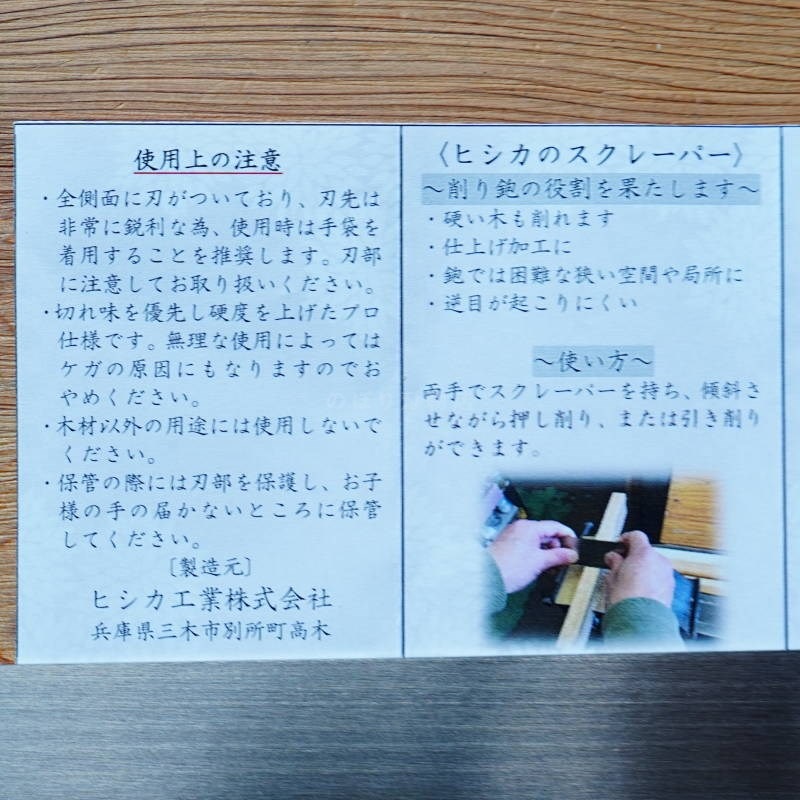 使用上の注意
・全側面に刃がついており、刃先は
非常に鋭利な為、使用時は手袋を
着用することを推奨します。刃部
に注意してお取り扱いください。
・切れ味を優先し硬度を上げたプロ
仕様です。無理な使用によっては
ケガの原因にもなりますのでお
やめください。
・木材以外の用途には使用しないで
ください。
・保管の際には刃部を保護し、お子
様の手の届かないところに保管
してください。
〔製造元〕
ヒシカ工業株式会社
兵庫県三木市別所町高木
〈ヒシカのスクレーパー〉
～削り鉋の役割を果たします～
・硬い木も削れます
・仕上げ加工に
・鉋では困難な狭い空間や局所に
・逆目が起こりにくい
～使い方～
両手でスクレーパーを持ち、傾斜さ
せながら押し削り、または引き削り
ができます。